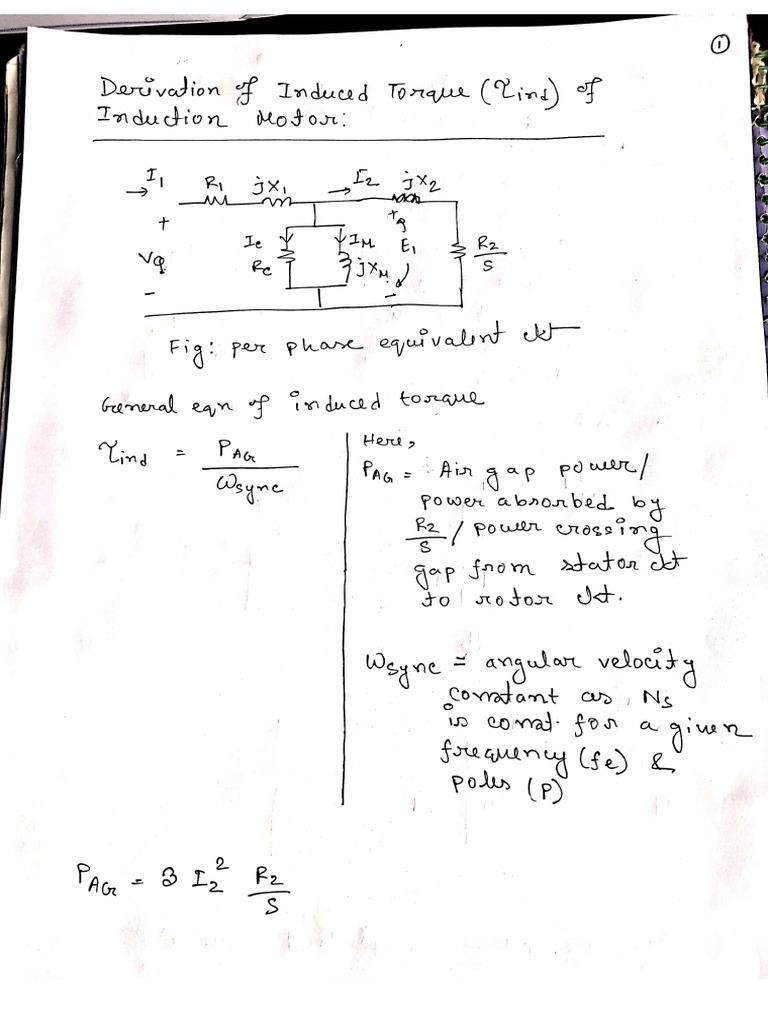 ①
Derivation of Induced Torque (τind) of
Induction Motor:
I1 R1 jX1 I2 jX2
+ +
Vφ Ic Rc IM jXM E1 R2/S
- -
Fig: per phase equivalent ckt
General eqn of induced torque
τind = PAG/ωsync
Here,
PAG = Air gap power/
power absorbed by
R2/S / power crossing
gap from stator ckt
to rotor ckt.
ωsync = angular velocity
constant as, Ns
is const. for a given
frequency (fe) &
poles (P)
PAG = 3 I2² R2/S